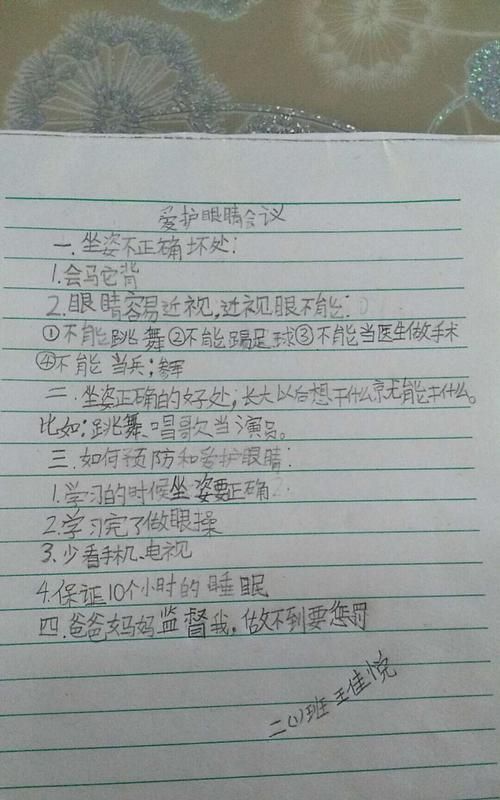 爱护眼睛会议
一.坐姿不正确坏处:
1.会马它背
2.眼睛容易近视,近视眼不能:
①不能跳舞②不能踢足球③不能当医生做手术
④不能当兵;
二.坐姿正确的好处;长大以后想干什么京尤能干什么。
比如:跳舞、唱歌、当演员。
三.如何预防和爱护眼睛:
1.学习的时候坐姿要正确
2.学习完了做眼操
3.少看手机、电视
4.保证10个小时的睡眠
四.爸爸妈妈监督我,做不到要惩罚
二(1)班王佳悦